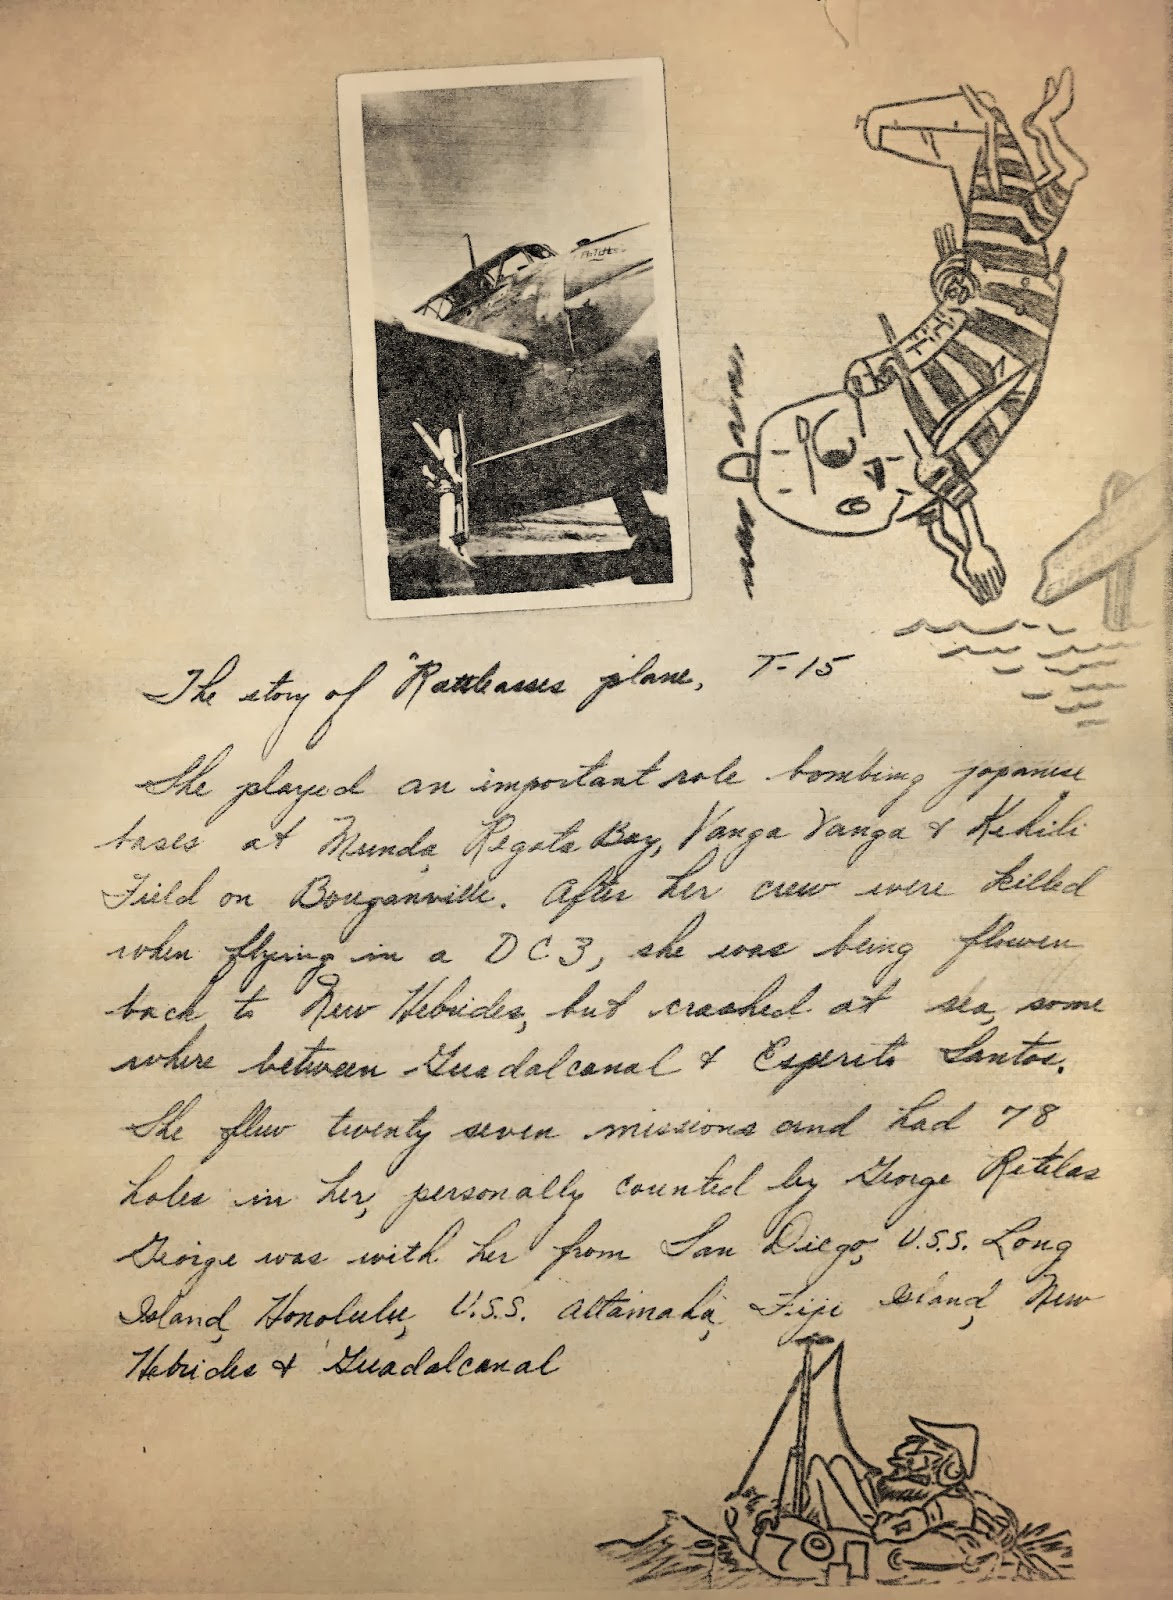 The story of "Rattleasses plane, T-15
She played an important role bombing japanese
bases at Munda, Regata Bay, Vanga Vanga & Kehili
Field on Bouganville. After her crew were killed
when flying in a DC3, she was being flowen
back to New Hebrides, but crashed at sea, some
where between Guadalcanal & Esperito Santos.
She flew twenty seven missions and had 78
holes in her, personally counted by George
George was with her from San Diego, U.S.S. Long
Island, Honolulu, U.S.S. Altamaha, Fiji Island, New
Hebrides & Guadalcanal